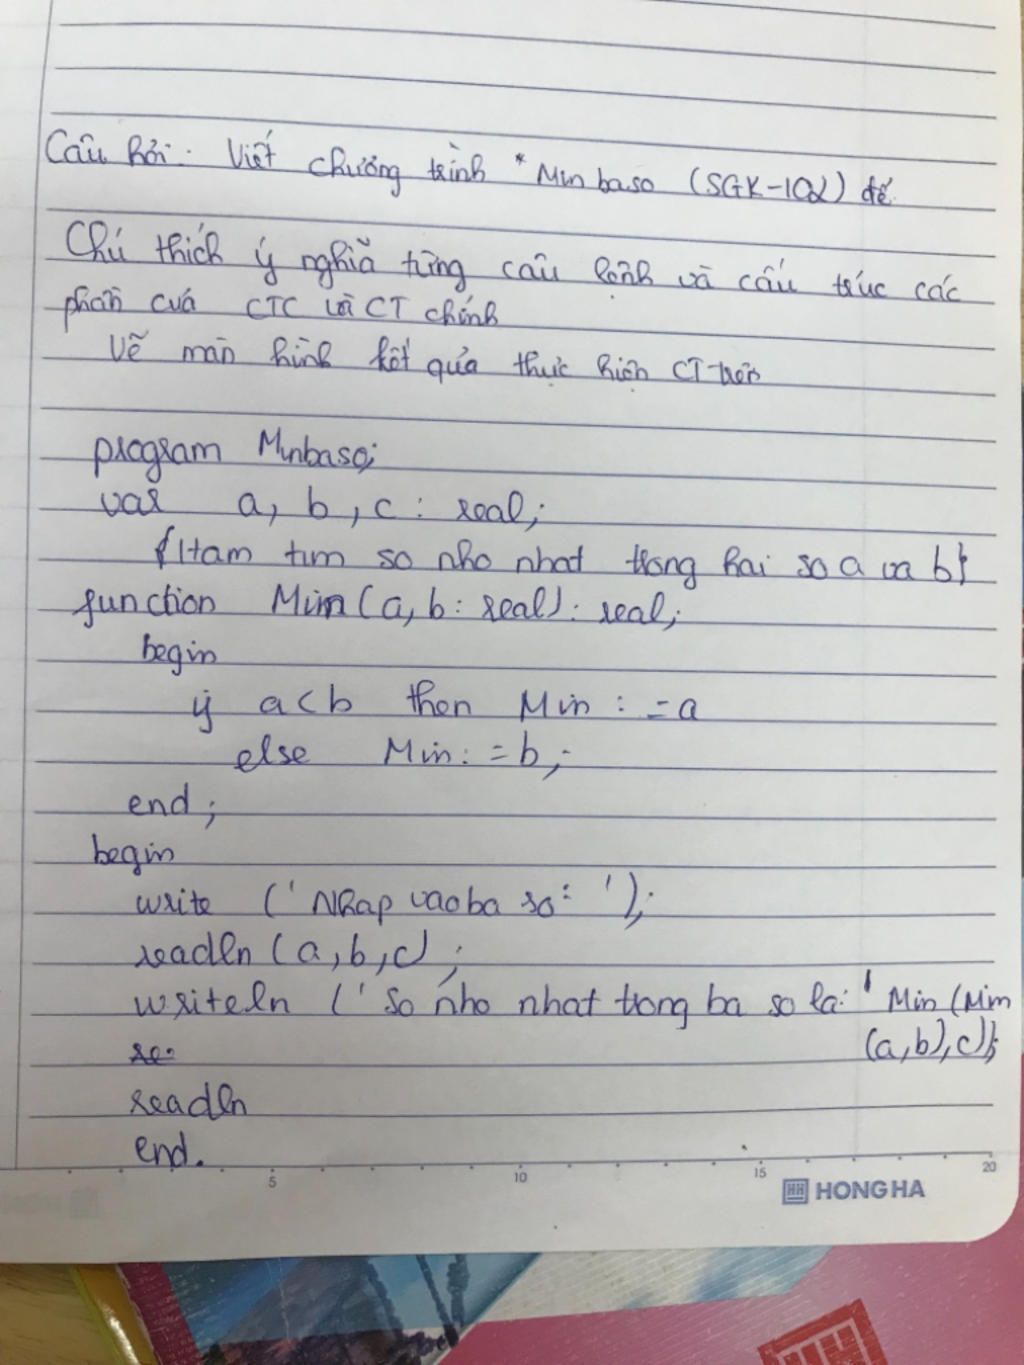 Câu hỏi: Viết chương trình * Minbaso (SGK-102) để
Chú thích ý nghĩa từng câu lệnh và cấu trúc các
phần của CTC và CT chính
Vẽ màn hình kết quả thực hiện CT trên
program Minbaso;
var a, b, c : real;
{Ham tim so nho nhat trong hai so a va b}
function Min(a, b: real): real;
begin
if a<b then Min : =a
else Min: =b;
end;
begin
write (' Nhap vao ba so: ');
readln (a,b,c);
writeln (' So nho nhat trong ba so la: ' Min (Min
(a,b),c));
readln
end.
5 10 15 20
HH HONG HA